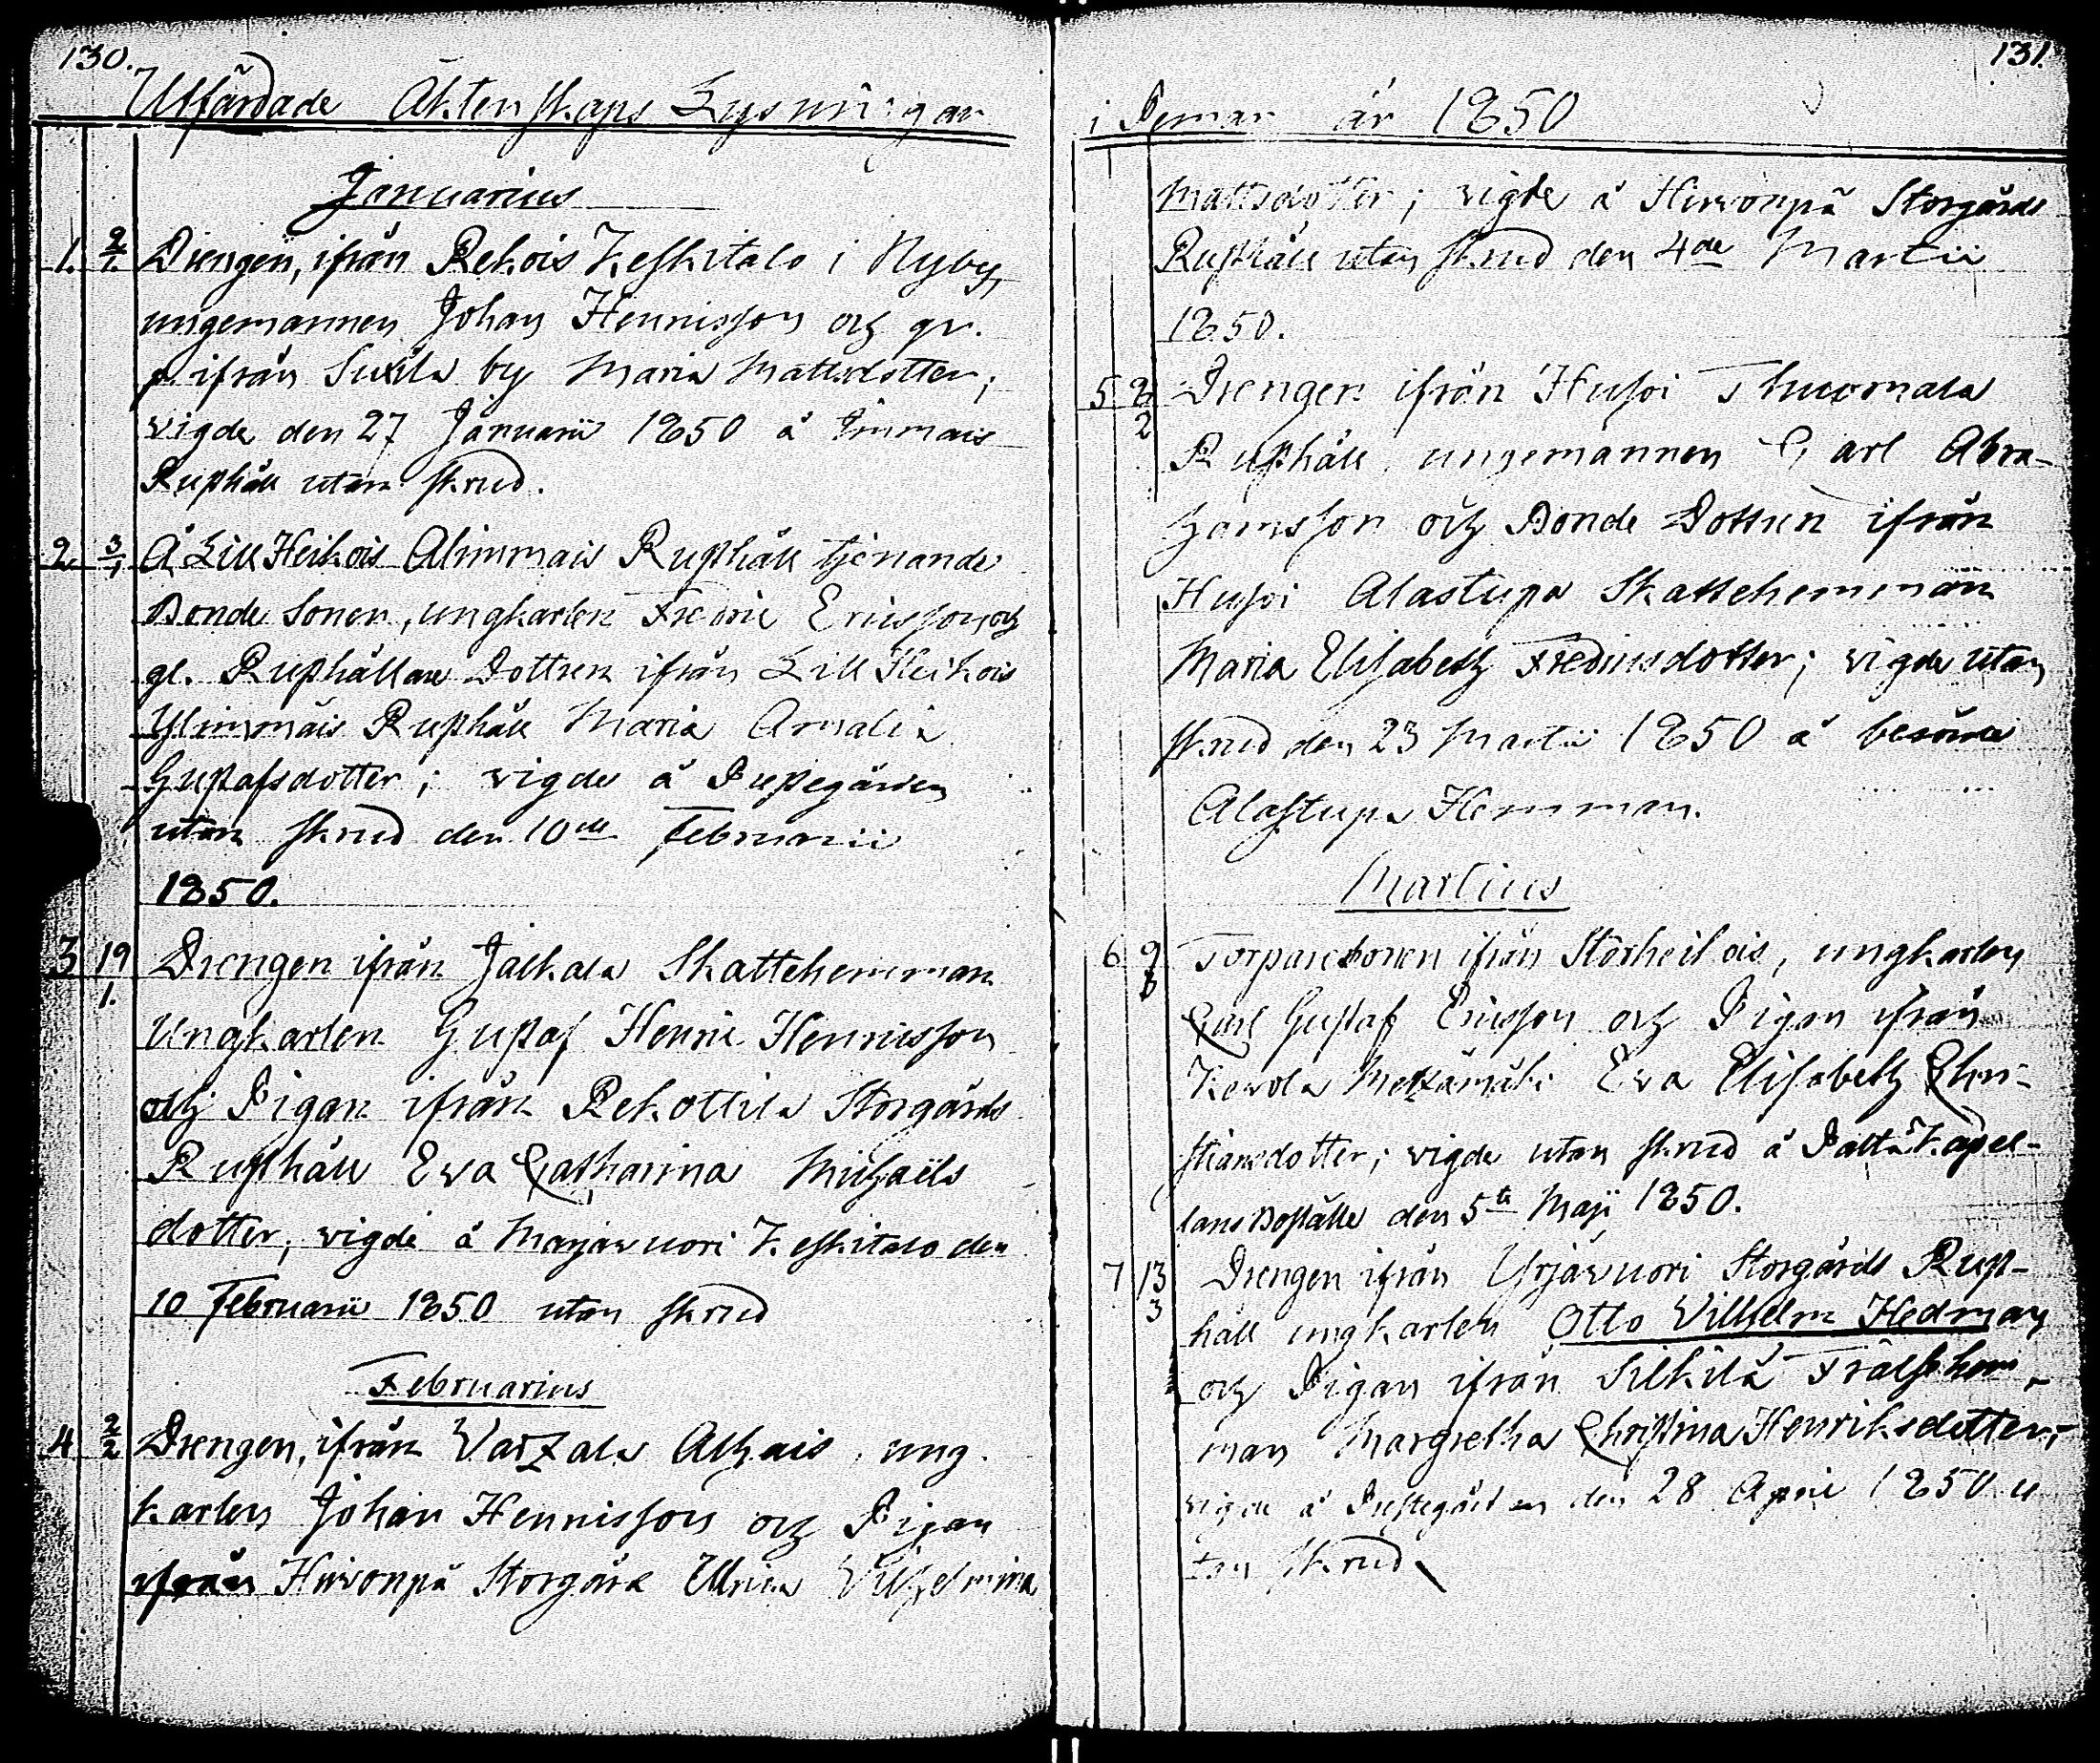 130.
Utfärdade Äktenskaps Lysningar
Januarius
1. 2/1. Drengen, ifrån Rekois Keskitalo i Nyby,
ungemannen Johan Henricsson och qv.
p. ifrån Suxila by Maria Mattsdotter;
vigde den 27 Januarii 1850 å Immais
Rusthåll utan skrud.
2. 3/1 Å Lill Heikois Alimmais Rusthåll tjenande
Bonde Sonen, ungkarlen Fredric Ericsson, och
gl. Rusthållare Dottren ifrån Lill Heikois
Ylimmäis Rusthåll Maria Amalia
Gustafsdotter; vigde å Prestegården
utan skrud den 10de Februarii
1850.
3 19/1. Drengen ifrån Jalkala Skattehemman
Ungkarlen Gustaf Henric Henricsson
och Pigan ifrån Rekottila Storgårds
Rusthåll Eva Catharina Michaëls
dotter, vigde å Marjavuori Keskitalo den
10 Februarii 1850 utan skrud
Februarius
4 2/2 Drengen, ifrån Varzala Alhais, ung
karlen Johan Henricsson och Pigan
ifrån Hirvonpä Storgård Ulrica Vilhelmina
131.
i Pemar år 1850
Mattsdotter; vigde å Hirvonpä Storgårds
Rusthåll utan skrud den 4de Martii
1850.
5 2/2 Drengen ifrån Husoi Thuomala
Rusthåll, ungemannen Carl Abra-
hamsson och Bonde Dottren ifrån
Husoi Alastupa Skattehemman
Maria Elisabeth Fredricsdotter; vigde utan
skrud den 23 Martii 1850 å berörde
Alastupa Hemman.
Martius
6 9/3 Torparesonen ifrån Storheikois, ungkarlen
Carl Gustaf Ericsson och Pigan ifrån
Kevola Metzämäki Eva Elisabeth Chri-
stiansdotter; vigde utan skrud å Pattä Kapel-
lans Boställe den 5te Maji 1850.
7 13/3 Drengen ifrån Yrjävuori Storgårds Rust-
håll ungkarlen Otto Vilhelm Hedman
och Pigan ifrån Silkilä Frälsehem-
man Margretha Christina Henriksdotter;
vigde å Prestegården den 28 April 1850 u
tan skrud